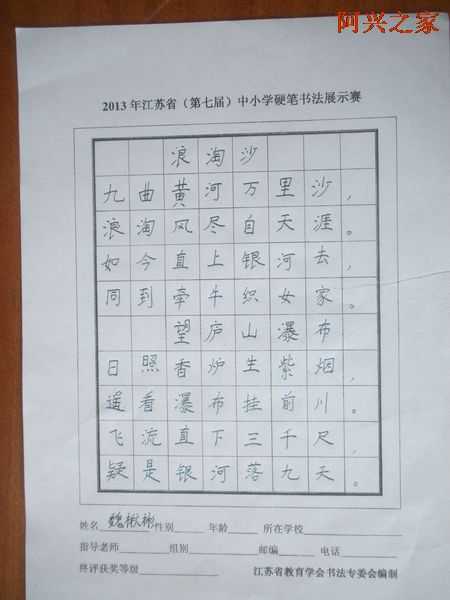 阿兴之家
2013年江苏省（第七届）中小学硬笔书法展示赛
浪淘沙
九曲黄河万里沙，
浪淘风尽自天涯。
如今直上银河去，
同到牵牛织女家。
望庐山瀑布
日照香炉生紫烟，
遥看瀑布挂前川。
飞流直下三千尺，
疑是银河落九天。
姓名 魏楸彬 性别 年龄 所在学校
指导老师 组别 邮编 电话
终评获奖等级 江苏省教育学会书法专委会编制